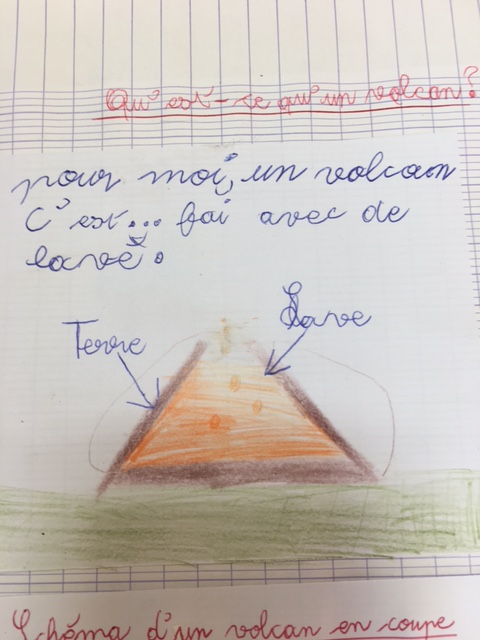 Qu'est-ce qu'un volcan?
pour moi, un volcan
C'est... fai avec de
lave.
Terre
Lave
Schéma d'un volcan en coupe